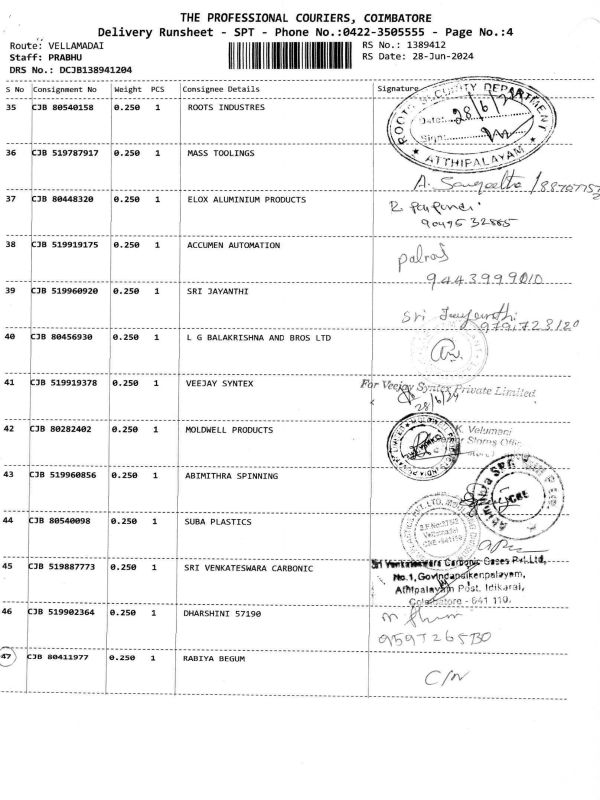 THE PROFESSIONAL COURIERS, COIMBATORE
Delivery Runsheet - SPT - Phone No.:0422-3505555 - Page No.:4
Route: VELLAMADAI
RS No.: 1389412
Staff: PRABHU
RS Date: 28-Jun-2024
DRS No.: DCJB138941204
S No Consignment No Weight PCS Consignee Details Signature
35 CJB 80540158 0.250 1 ROOTS INDUSTRES
ROOTS SECURITY DEPARTMENT
Date: 28/6/24
Sign
ATTHIPALAYAM
36 CJB 519787917 0.250 1 MASS TOOLINGS
A. Sangeetha
37 CJB 80448320 0.250 1 ELOX ALUMINIUM PRODUCTS
38 CJB 519919175 0.250 1 ACCUMEN AUTOMATION
Palraj
9443999010
39 CJB 519960920 0.250 1 SRI JAYANTHI
Sri Jayanthi
40 CJB 80456930 0.250 1 L G BALAKRISHNA AND BROS LTD
41 CJB 519919378 0.250 1 VEEJAY SYNTEX
For Veejay Syntex Private Limited
28/6/24
42 CJB 80282402 0.250 1 MOLDWELL PRODUCTS
K. Velumani
43 CJB 519960856 0.250 1 ABIMITHRA SPINNING
44 CJB 80540098 0.250 1 SUBA PLASTICS
45 CJB 519887773 0.250 1 SRI VENKATESWARA CARBONIC
Sri Venkateswara Carbonic Gases Pvt.Ltd,
No.1, Govindapaikenpalayam,
Athipalayam Post, Idikarai,
Coimbatore - 641 110.
46 CJB 519902364 0.250 1 DHARSHINI 57190
47 CJB 80411977 0.250 1 RABIYA BEGUM
C/N